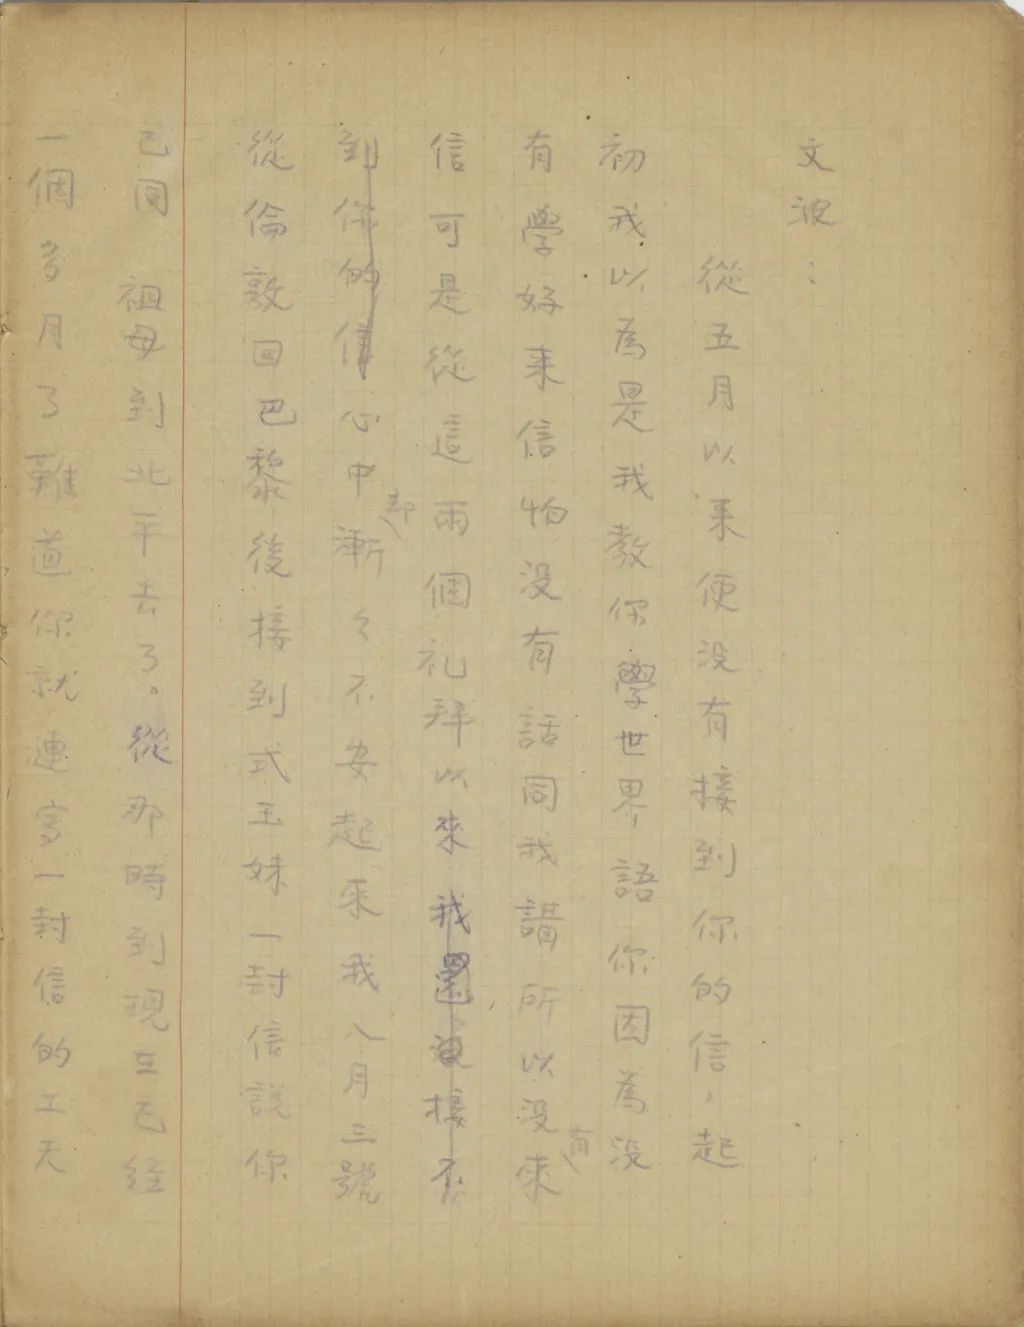 文波：
從五月以来便没有接到你的信，起
初我以為是我教你學世界語你因為没
有學好来信怕没有話同我講所以没有來
信可是從這兩個礼拜以來我還没接不
到你的信心中却漸々不安起来我八月三號
從倫敦回巴黎後接到式玉妹一封信說你
已同 祖母到北平去了。從那時到現在已経
一個多月了難道你就連写一封信的工夫